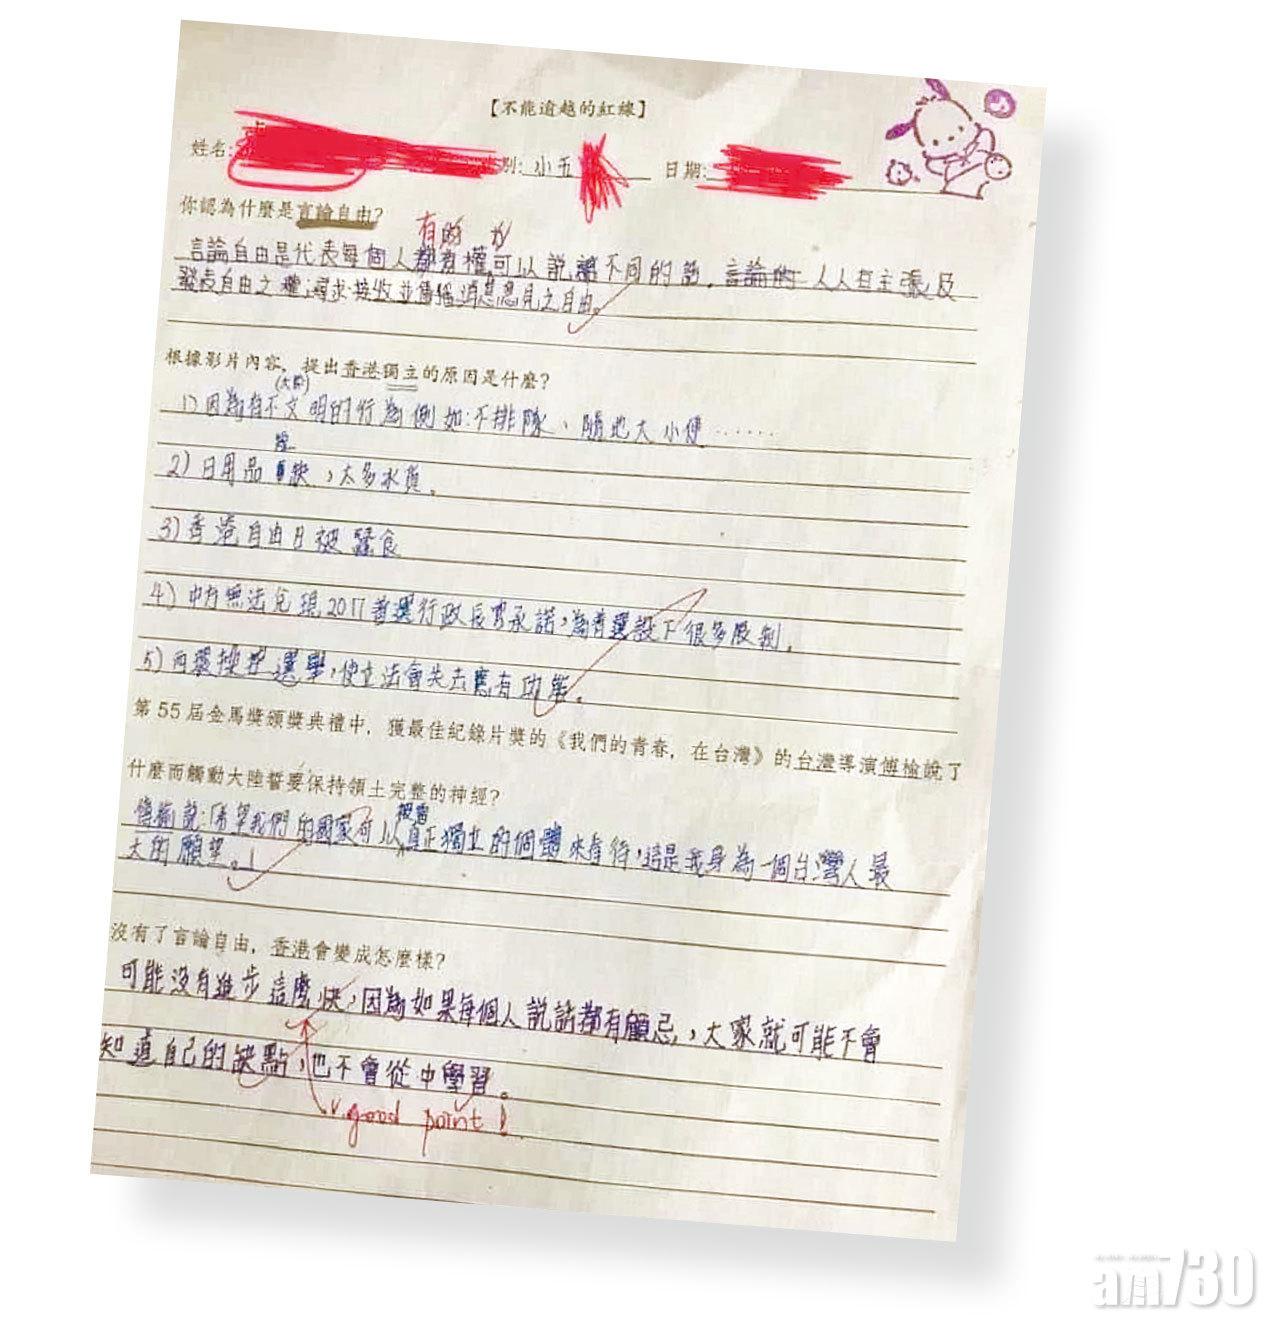 【不能逾越的紅線】
姓名: 別: 小五 日期:
你認為什麼是言論自由?
有的
言論自由是代表每個人都有權可以說 不同的話。言論的 人人 主張及
發表自由之權,尋求接收並傳播消息意見之自由。
根據影片內容, 提出香港獨立的原因是什麼?
(大陸)
1)因為有不文明的行為例如:不排隊、隨地大小便……
2)日用品 缺,太多水貨。
3)香港自由日被蠶食
4)中有無法兌現2017普選行政長官承諾,為普選設下很多限制。
5) 操控選舉,使立法會失去應有功能。
第 55 屆金馬獎頒獎典禮中, 獲最佳紀錄片獎的《我們的青春, 在台灣》的台灣導演傅榆說了
什麼而觸動大陸誓要保持領土完整的神經?
被當
傅榆說:「希望我們的國家可以真正獨立的個體來看待,這是我身為一個台灣人最
大的願望。」
沒有了言論自由, 香港會變成怎麼樣?
可能沒有進步這麼快,因為如果每個人說話都有顧忌,大家就可能不會
知道自己的缺點,也不會從中學習。
good point!
am730